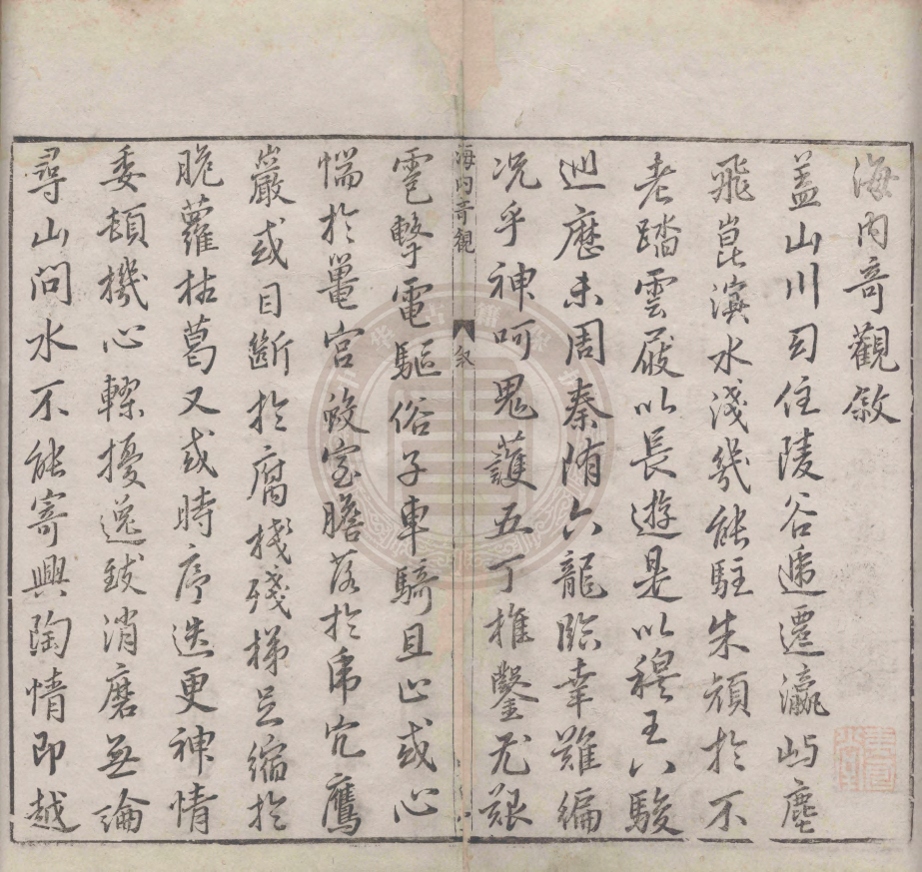 海内奇觀敘
盖山川司住陵谷遞遷瀛屿塵
飛崑溟水淺幾能駐朱顔於不
老踏雲屐以長遊是以穆王八駿
廵歷未周秦隋六龍臨幸難編
况乎神呵鬼護五丁摧鑿尤艱
雹擊電驅俗子車騎且止或心
惴於鼍宫蛟室膽落於乕穴鷹
巖或目斷於腐棧殘梯足縮於
脆蘿枯葛又或時序迭更神情
委頓機心轇擾逸致消磨無論
尋山問水不能寄興陶情即越
海内奇觀
叙